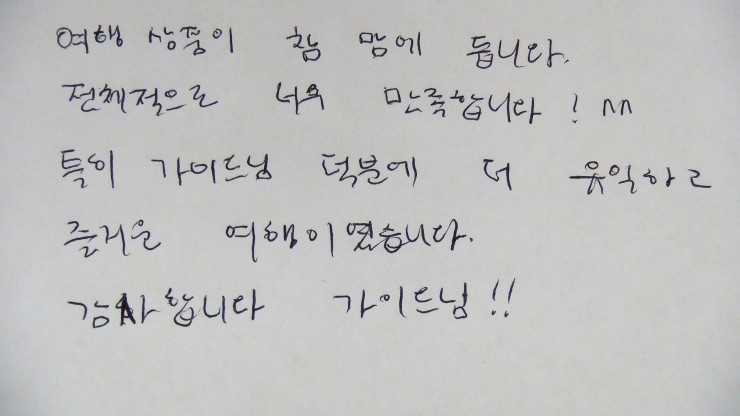 여행 상품이 참 맘에 듭니다.
전체적으로 너무 만족합니다! ^^
특히 가이드님 덕분에 더 유익하고
즐거운 여행이였습니다.
감사합니다 가이드님!!